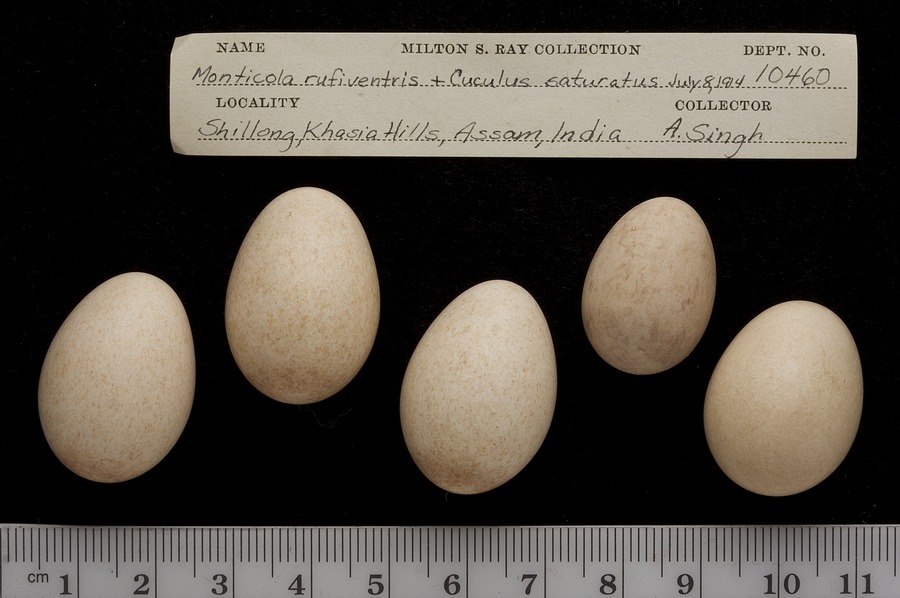 NAME MILTON S. RAY COLLECTION DEPT. NO.
Monticola rufiventris + Cuculus saturatus July 8, 1914 10460
LOCALITY COLLECTOR
Shillong, Khasia Hills, Assam, India A. Singh
cm 1 2 3 4 5 6 7 8 9 10 11